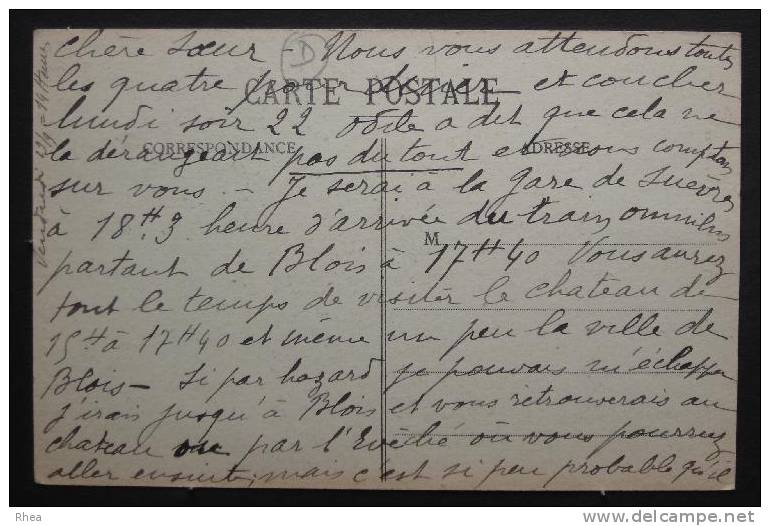 Vendredi 19/9 – 14 heures
Chère Sœur – Nous vous attendons toutes
D
les quatre pour et coucher
CARTE POSTALE
lundi soir 22 Odile a dit que cela ne
CORRESPONDANCE
ADRESSE
la dérangeait pas du tout et nous comptons
sur vous – Je serai à la gare de Suèvres
à 18H3 heure d'arrivée du train omnibus
M
partant de Blois à 17H40 Vous aurez
tout le temps de visiter le chateau de
15H à 17H40 et même un peu la ville de
Blois – Si par hazard je pouvais m'échapper
j'irais jusqu'à Blois et vous retrouverais au
chateau ou par l'Evêché où vous pourrez
aller ensuite, mais c'est si peu probable qu'il
Rhea
delcampe.net